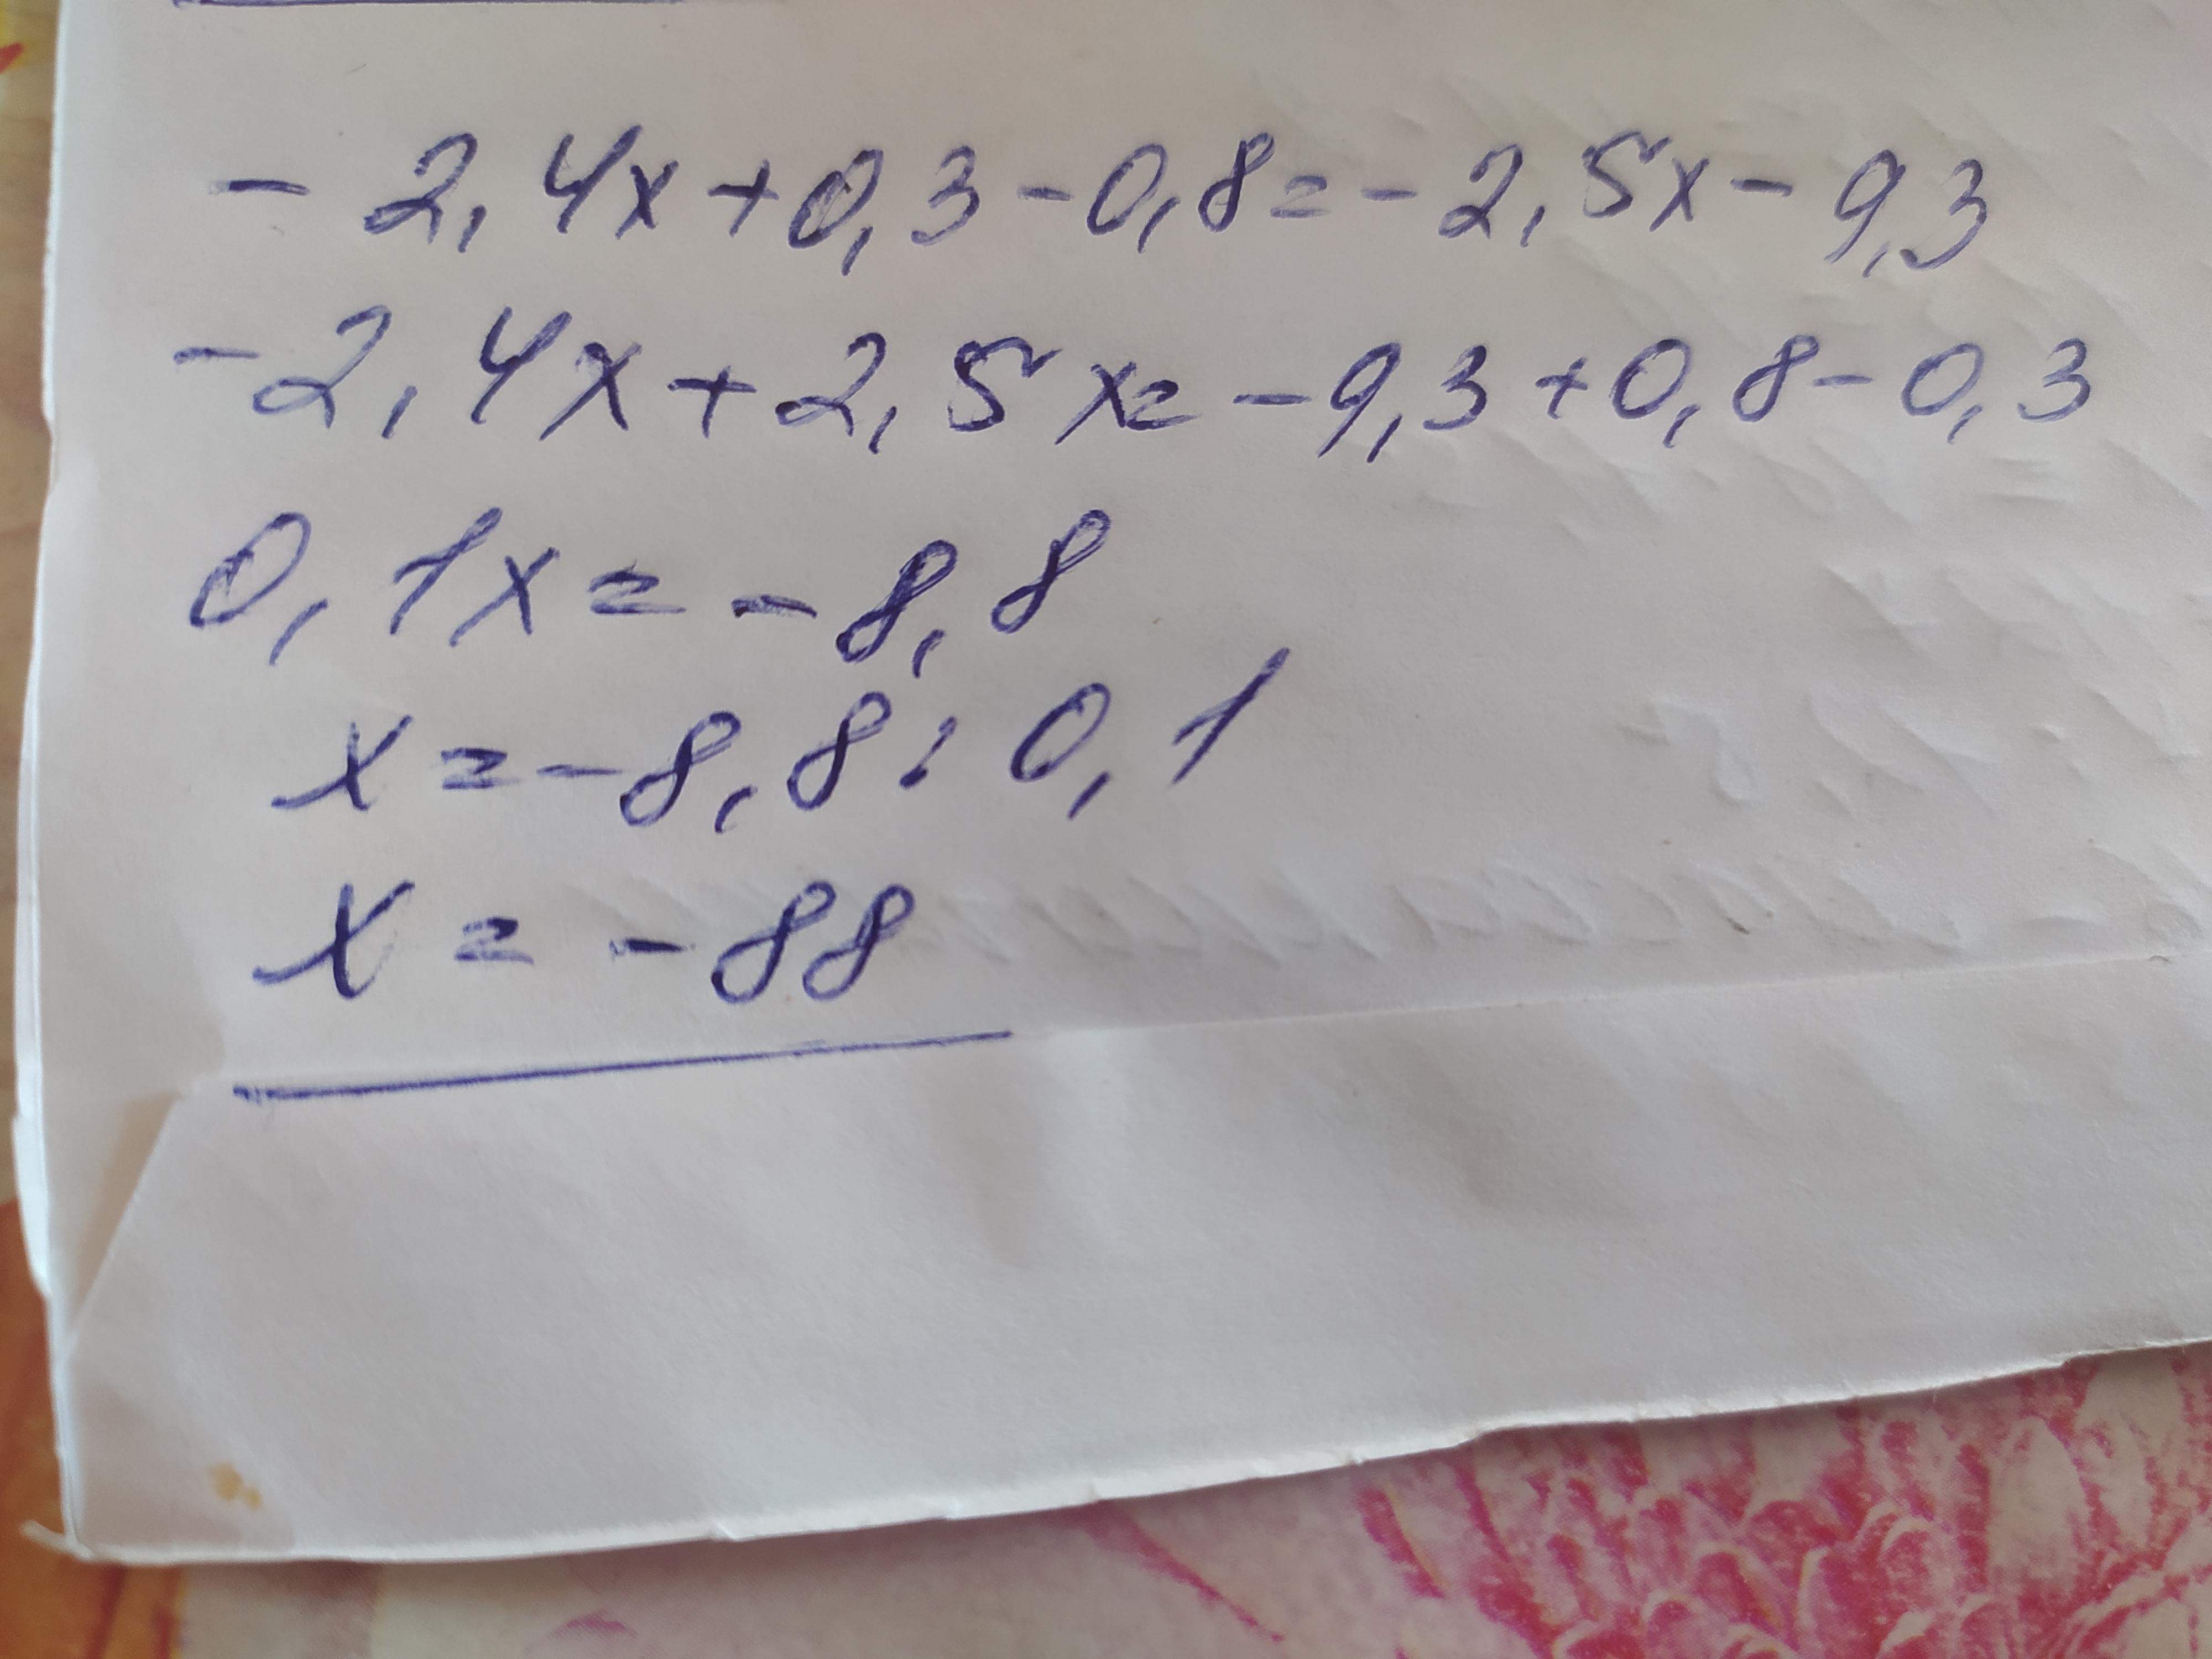 - 2,4x+0,3-0,8=-2,5x-9,3
-2,4x+2,5x=-9,3+0,8-0,3
0,1x=-8,8
x=-8,8:0,1
x=-88